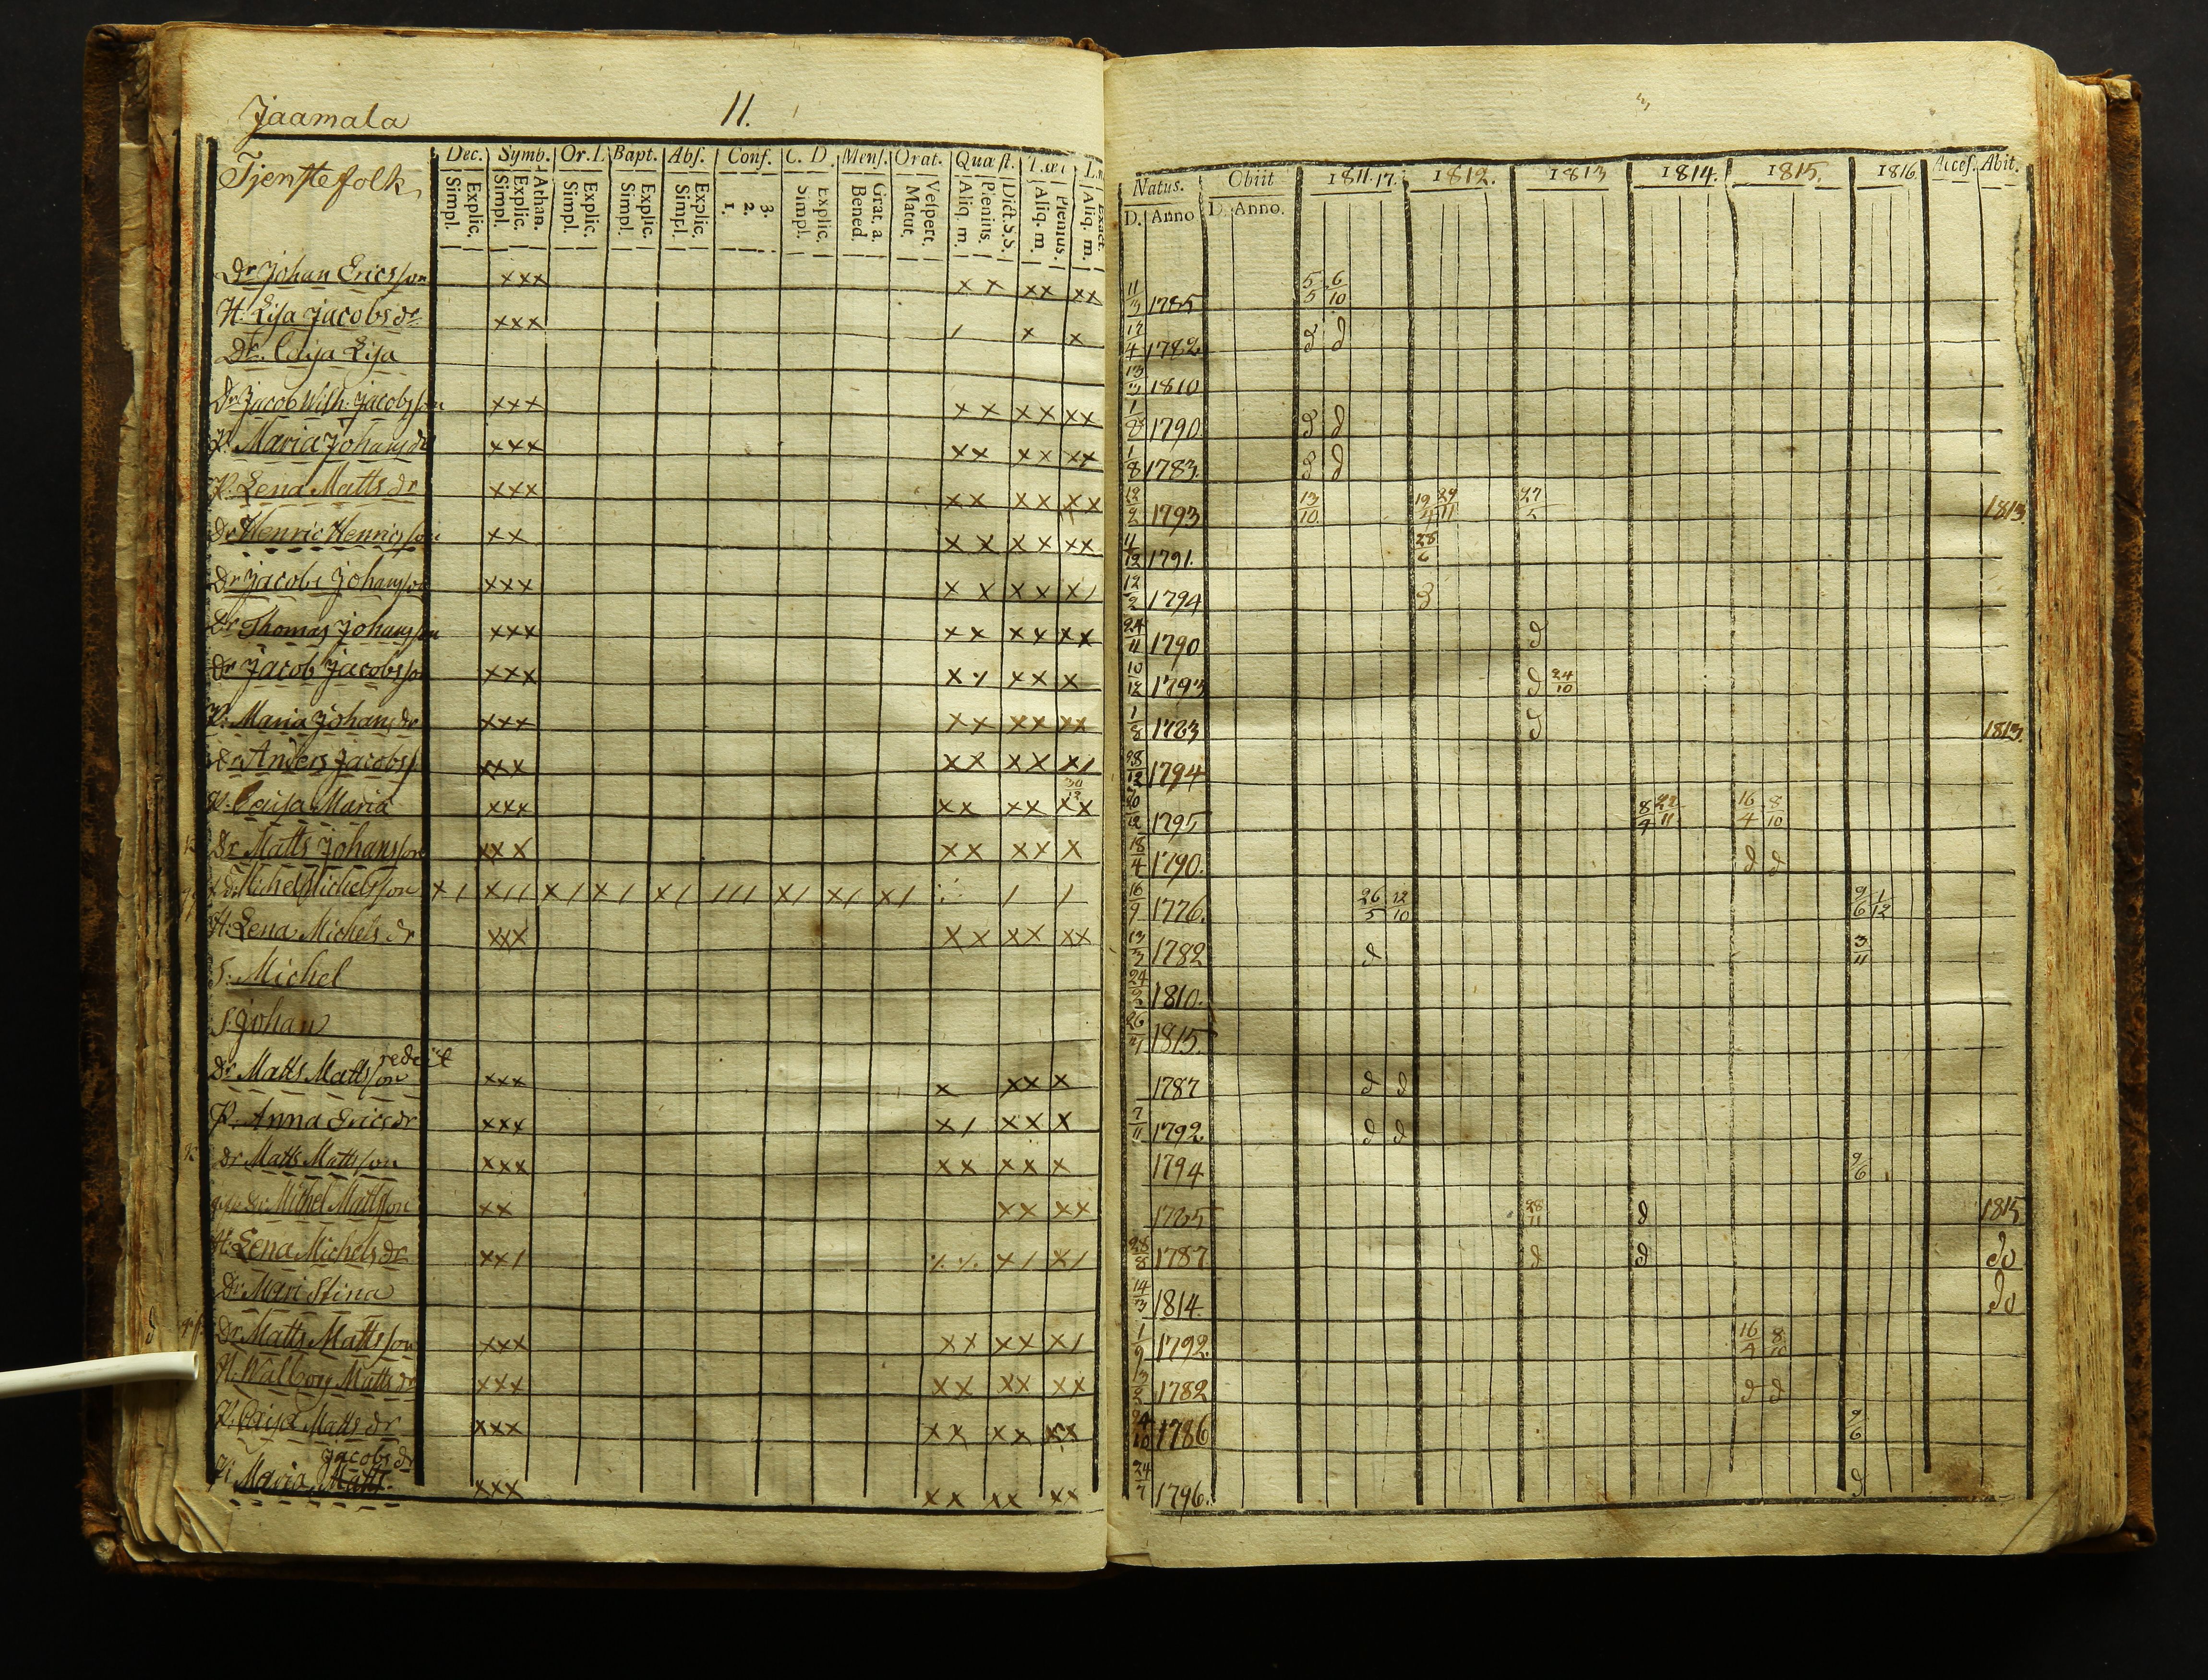 Jaamala 11.
Tjenstefolk
Dec. Symb. Or. D. Bapt. Abs. Conf. C. D. Mens. Orat. Quæst.
Simpl. Explic. Simpl. Explic. Athan. Simpl. Explic. Simpl. Explic. Simpl. Explic. 1. 2. 3. Simpl. Explic. Bened. Grat. a. Matut. Vespert. Aliq. m. Plenius. Dict. S. S. Aliq. m. Plenius. Aliq. m. Exact.
Natus. Obiit 1811.17. 1812. 1813 1814. 1815. 1816 Acces. Abit.
D. Anno D. Anno.
Dr Johan Ericsson xxx xx xx xx 11/3 1785 5/5 6/10
H. Lisa Jacobsdr xxx / x x 17/4 1782 d d
Dr. Caisa Lisa 13/3 1810
Dr Jacob Wilh: Jacobsson xxx xx xx xx 1/8 1790 d d
P. Maria Johansdr xxx xx xx xx 1/8 1783. d d
P. Lena Mattsdr xxx xx xx xx 12/2 1793 13/10 19/4 29/11 27/5 1813.
Dr Henric Henricsson xx xx xx xx 11/12 1791. 28/6
Dr Jacob Johansson xxx xx xx x/ 12/2 1794 d
Dr Thomas Johansson xxx xx xx xx 24/11 1790 d
Dr Jacob Jacobsson xxx x/ xx x 10/12 1793 d 24/10
P. Maria Johansdr xxx xx xx xx 1/8 1783 d 1813.
Dr Anders Jacobss xxx xx xx x/ 28/12 1794
P. Caisa Maria xxx xx xx xx 30/12 1795 8/4 22/11 16/4 8/10
Dr Matts Johansson xxx xx xx x 18/4 1790. d d
Dr Michel Michelsson x/ x// x/ x/ x/ /// x/ x/ x/ / / 16/9 1776. 26/5 12/10 9/6 1/12
H. Lena Michelsdr xxx xx xx xx 13/3 1782 d 3/11
S. Michel 24/9 1810.
S. Johan 26/4 1815.
rediit
Dr Matts Mattsson xxx x xx x 1787 d d
P. Anna Ericsdr xxx x/ xx x 7/11 1792. d d
Dr Matts Mattsson xxx xx xx x 1794 9/6
Dr Michel Mattsson xx xx xx 1785 28/11 d 1815
H. Lena Michelsdr xx/ /. /. x/ x/ 28/8 1787 d d do
Dr Mari Stina 14/3 1814. do
Dr Matts Mattsson xxx xx xx x/ 1/9 1792. 16/4 8/10
H. Walborg Mattsdr xxx xx xx xx 13/2 1782 d d
P. Caisa Mattsdr xxx xx xx xx 24/10 1786 9/6
Jacobsdr
P. Maria Matts. xxx xx xx xx 24/7 1796. d